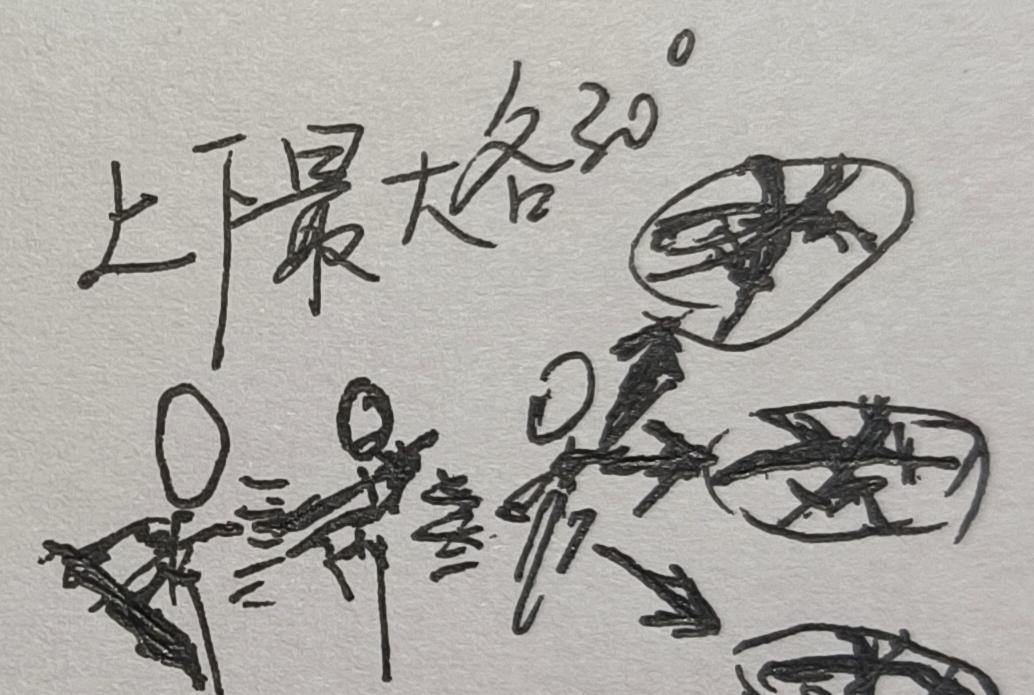 上下最大各30°